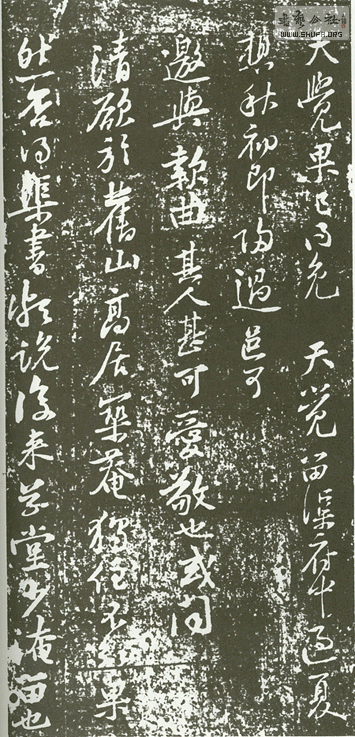 書藝公社
WWW.SHUFA.ORG
天覺果已得免 天覺留渠府中過夏
秋初即過邑可
邀與款曲其人甚可愛敬也或聞
清欲於舊山高居築菴獨住不果
然否得渠書說後來草堂少淹留也